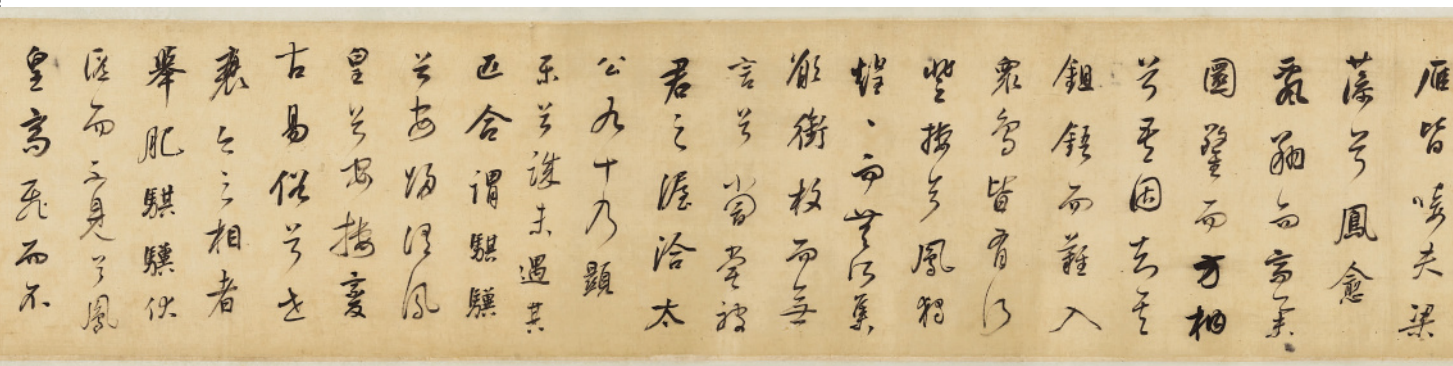 雁皆唼夫梁
藻兮鳳愈
飄翔而高舉
圜鑿而方枘
兮吾固知其
鉏鋙而難入
眾鳥皆有所
登棲兮鳳獨
煌〻而無所集
願銜枚而無
言兮尚嘗被
君之渥洽太
公九十乃顯
榮兮誠未遇其
匹合謂騏驥
兮安歸謂鳳
皇兮安棲變
古易俗兮世
衰今之相者
舉肥騏驥伏
匿而不見兮鳳
皇高飛而不